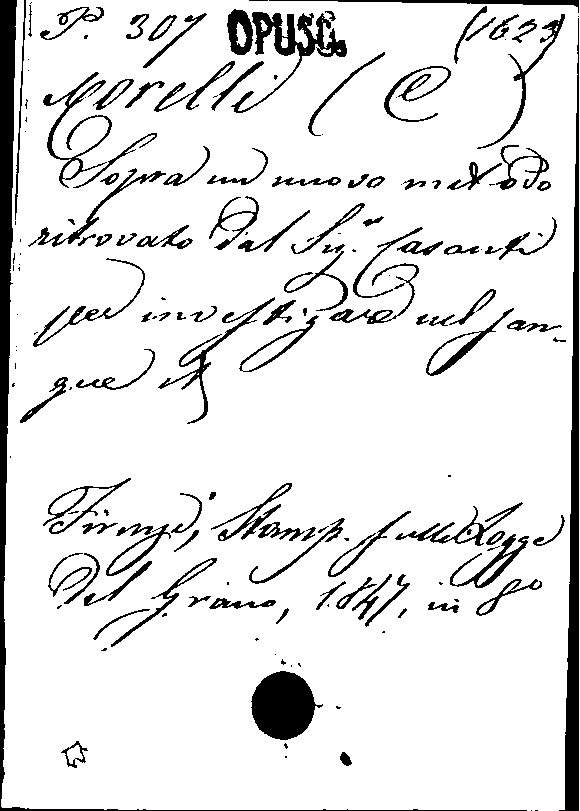 P. 307 OPUSC. (1623)
Morelli (C)
Sopra un nuovo metodo
ritrovato dal Sig.r Casanti
per investigare nel san-
gue
Firenze, Stamp. sulle Logge
del Grano, 1847, in 8º